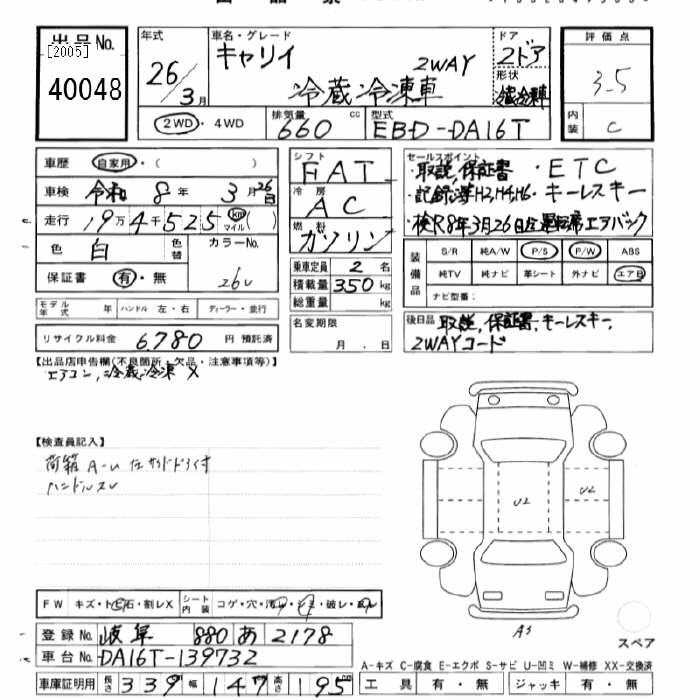 出品No.
[2005]
40048
年式
26/3月
車名・グレード
キャリイ 2WAY
冷蔵冷凍車
ドア
2ドア
形状
冷蔵冷凍車
評価点
3.5
内装
C
2WD・4WD
排気量
660 cc
型式
EBD-DA16T
車歴 自家用・( )
車検 令和 8年 3月26日
走行 19万4千525 km マイル ( )
色 白 色替 カラーNo. 26U
保証書 有・無
モデル年式 年 ハンドル 左・右 ディーラー・並行
リサイクル料金 6,780 円 預託済
シフト FAT
冷房 AC
燃料 ガソリン
乗車定員 2 名
積載量 350 kg
総重量 kg
名変期限
月 . 日
セールスポイント
・取説,保証書 ・ETC
・記録簿H2,H4,H6・キーレスキー
・検R8年3月26日 左運転席エアバック
装備品
S/R 純A/W P/S P/W ABS
純TV 純ナビ 革シート 外ナビ エアB
ナビ型番:
後日品 取説,保証書,キーレスキー,
2WAYコード
【出品店申告欄(不良箇所・欠品・注意事項等)】
エアコン,冷蔵冷凍 X
【検査員記入】
荷箱 A-U 左サイドドア付
ハンドルスレ
U2
U2
A3
スペア
FW キズ・ト石・割レX シート内装 コゲ・穴・汚レ・シミ・破レ・スレ
登録No. 岐阜 880 あ 2178
車台No. DA16T-139732
車庫証明用 長さ 339 幅 147 高さ 195
A-キズ C-腐食 E-エクボ S-サビ U-凹ミ W-補修 XX-交換済
工具 有・無 ジャッキ 有・無